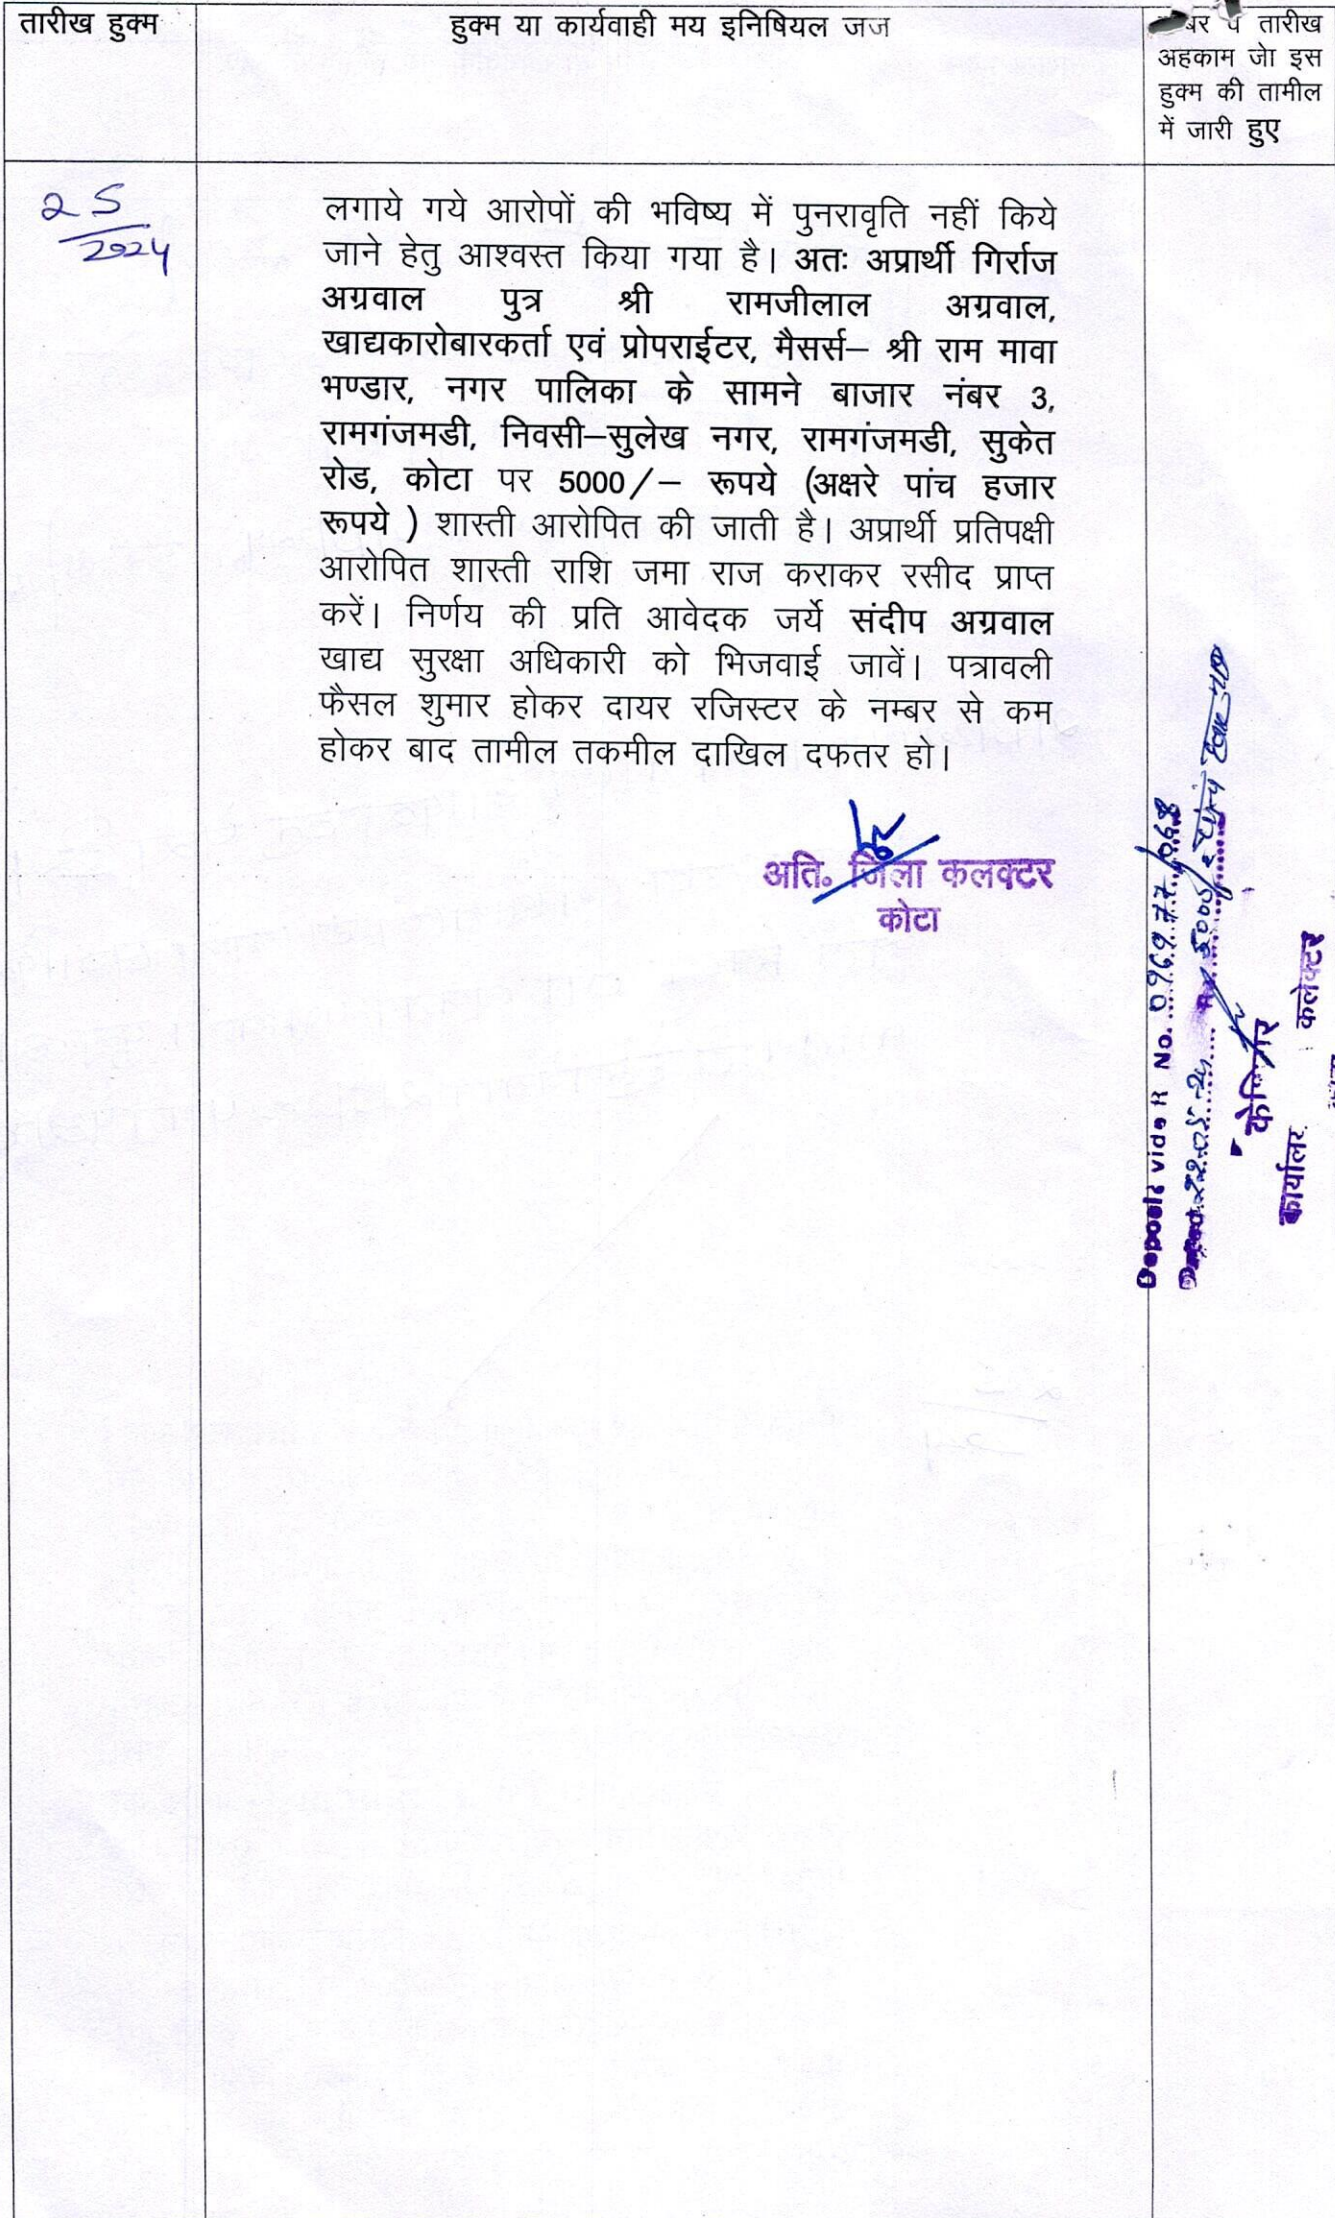 तारीख हुक्म
हुक्म या कार्यवाही मय इनिषियल जज
तारीख
अहकाम जो इस
हुक्म की तामील
में जारी हुए
2 5
2024
लगाये गये आरोपों की भविष्य में पुनरावृति नहीं किये
जाने हेतु आश्वस्त किया गया है। अतः अप्रार्थी गिर्राज
अग्रवाल पुत्र श्री रामजीलाल अग्रवाल,
खाद्यकारोबारकर्ता एवं प्रोपराईटर, मैसर्स– श्री राम मावा
भण्डार, नगर पालिका के सामने बाजार नंबर 3,
रामगंजमडी, निवसी–सुलेख नगर, रामगंजमडी, सुकेत
रोड, कोटा पर 5000/– रूपये (अक्षरे पांच हजार
रूपये ) शास्ती आरोपित की जाती है। अप्रार्थी प्रतिपक्षी
आरोपित शास्ती राशि जमा राज कराकर रसीद प्राप्त
करें। निर्णय की प्रति आवेदक जर्ये संदीप अग्रवाल
खाद्य सुरक्षा अधिकारी को भिजवाई जावें। पत्रावली
फैसल शुमार होकर दायर रजिस्टर के नम्बर से कम
होकर बाद तामील तकमील दाखिल दफतर हो।
अति. जिला कलक्टर
कोटा
Deposit vide R No.
5000/-
कार्यालय कलेक्टर